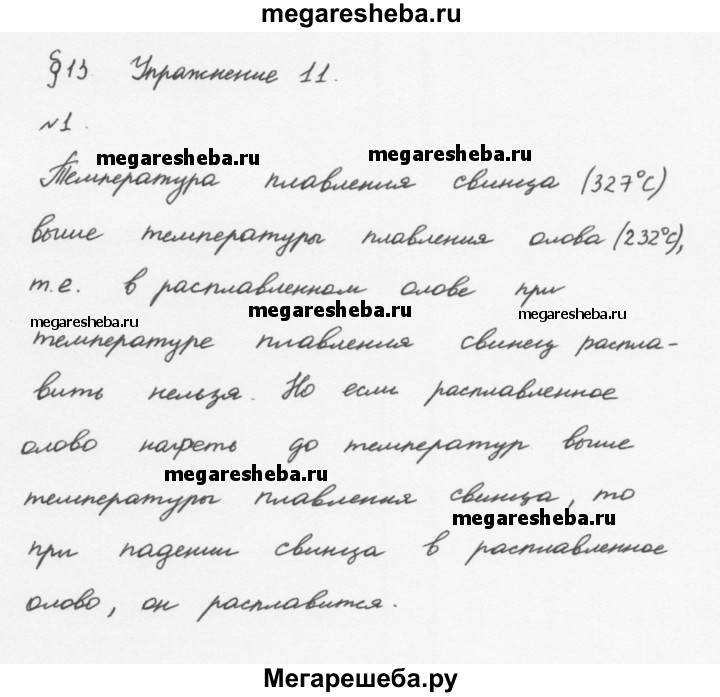 megaresheba.ru
§13. Упражнение 11.
№1.
megaresheba.ru megaresheba.ru
Температура плавления свинца (327°С)
выше температуры плавления олова (232°С),
т.е. в расплавленном олове при
megaresheba.ru megaresheba.ru megaresheba.ru
температуре плавления свинец распла-
вить нельзя. Но если расплавленное
олово нагреть до температур выше
megaresheba.ru
температуры плавления свинца, то
megaresheba.ru
при падении свинца в расплавленное
олово, он расплавится.
Мегарешеба.ру